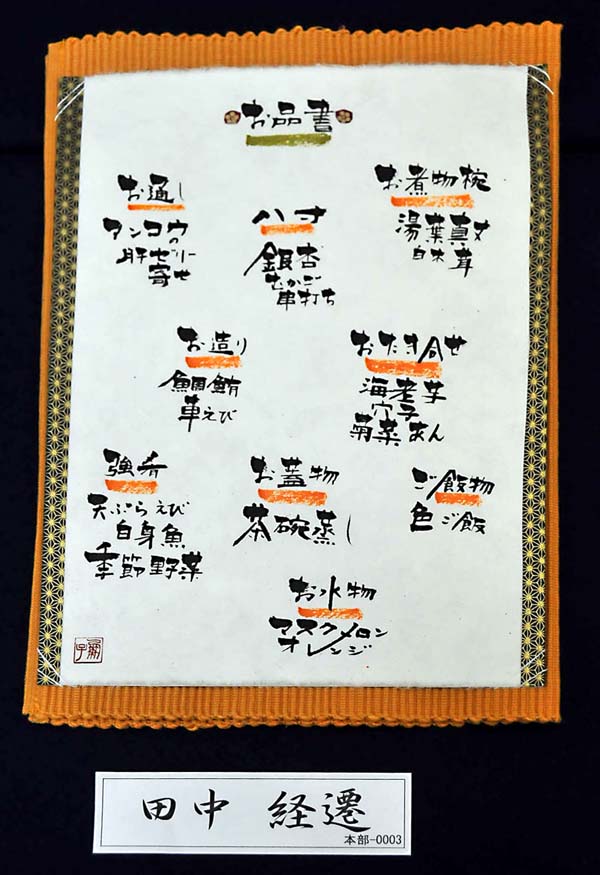 お品書
お通し
アンコウの
肝ゼリー
寄せ
八寸
銀杏
むかご
串打ち
お煮物椀
湯葉真丈
白木茸
お造り
鯛 鮪
車えび
おたき合せ
海老芋
穴子
菊菜あん
強肴
天ぷらえび
白身魚
季節野菜
お蓋物
茶碗蒸し
ご飯物
色ご飯
お水物
マスクメロン
オレンジ
田中 経遷
本部-0003